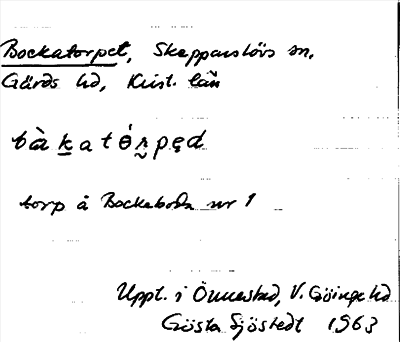 Bockatorpet, Skepparslövs sn.
Gärds hd, Krist. län
bàk̲atórpęd
torp å Bockeboda nr 1
Uppt. i Önnestad, V. Göinge hd
Gösta Sjöstedt 1963